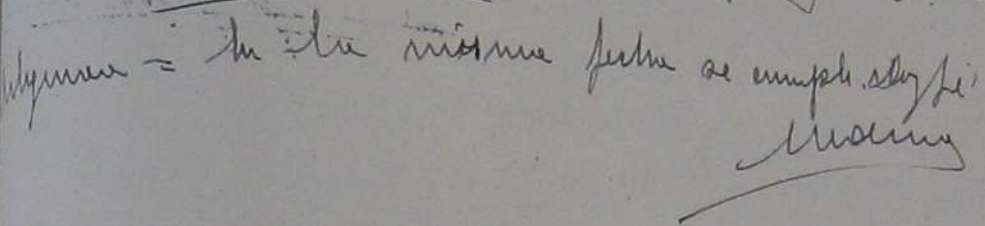 = En la misma fecha se cumple. doy fé